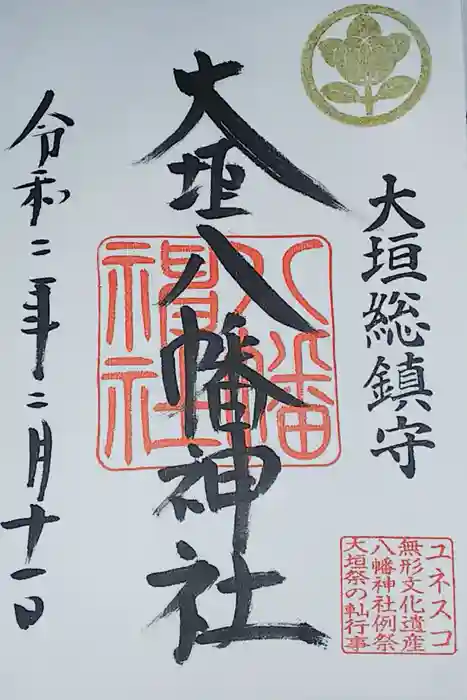 大垣総鎮守
大垣八幡神社
令和二年二月十一日
八幡
神社
ユネスコ
無形文化遺産
八幡神社例祭
大垣祭の軕行事